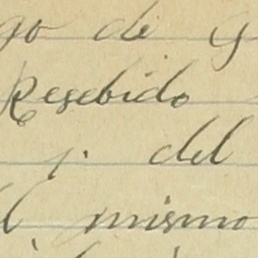 go de G
Resebido
j. del
l mismo